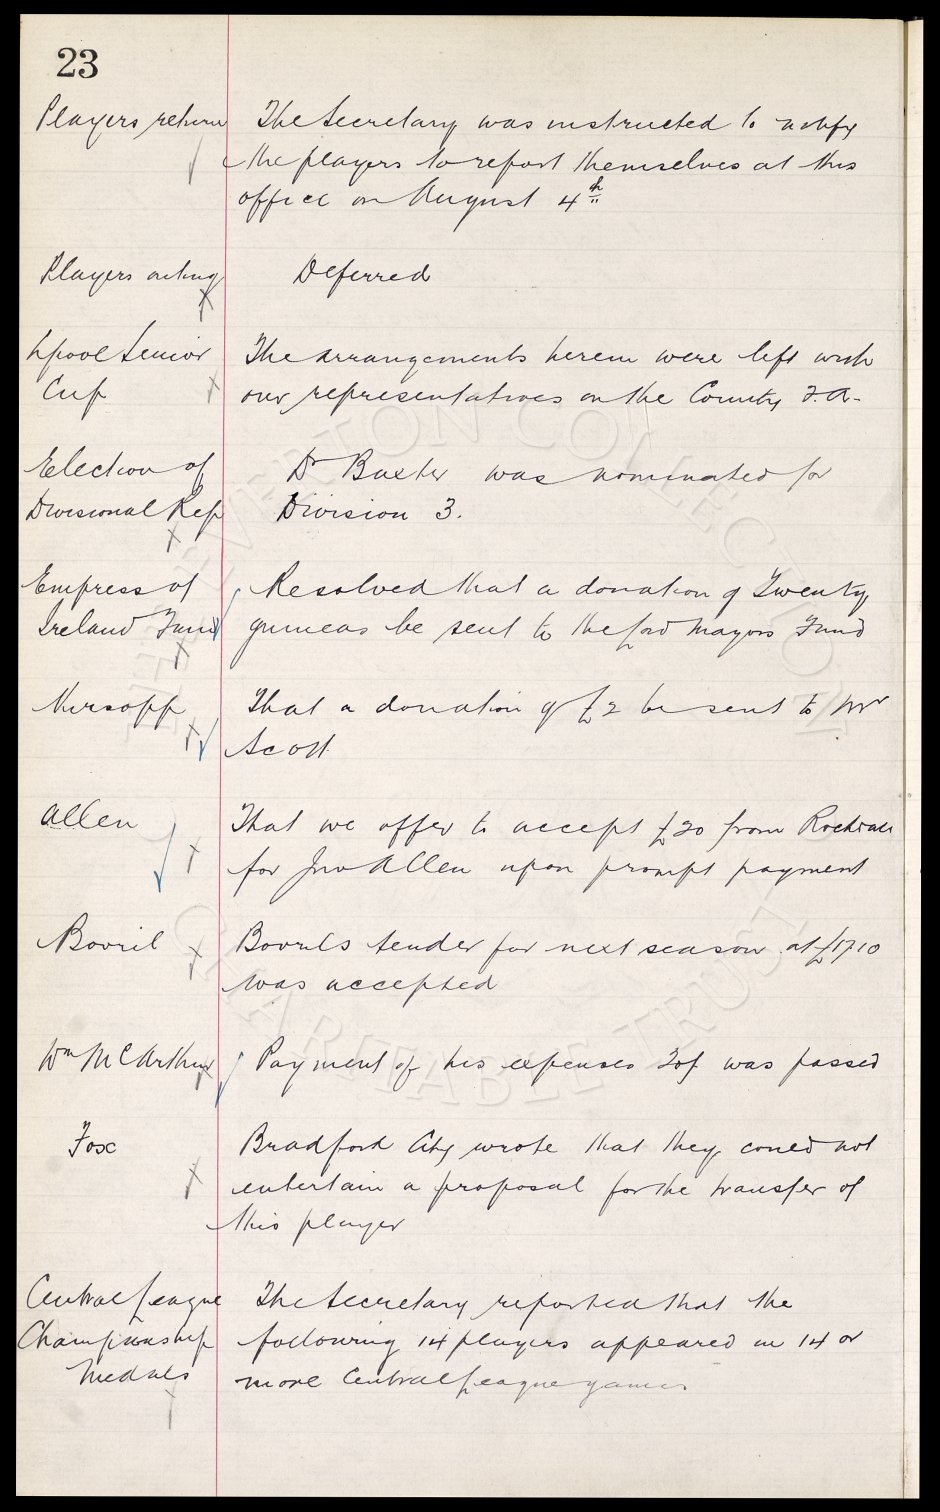 23
Players return The Secretary was instructed to notify
the players to report themselves at this
office on August 4th
Players outing Deferred
Lpool Senior The arrangements herein were left with
Cup our representatives on the County F.A.
Election of Dr Baxter was nominated for
Divisional Rep Division 3.
Empress of Resolved that a donation of Twenty
Ireland Fund guineas be sent to the Lord Mayors Fund
Kirsopp That a donation of £2 be sent to Mr
Scott
Allen That we offer to accept £20 from Rochdale
for Jno Allen upon prompt payment
Bovril Bovrils tender for next season at £17.10
was accepted
Wm McArthur Payment of his expenses was passed
Fox Bradford City wrote that they could not
entertain a proposal for the transfer of
this player
Central League The Secretary reported that the
Championship following 14 players appeared in 14 or
Medals more Central League games
THE EVERTON COLLECTION
CHARITABLE TRUST